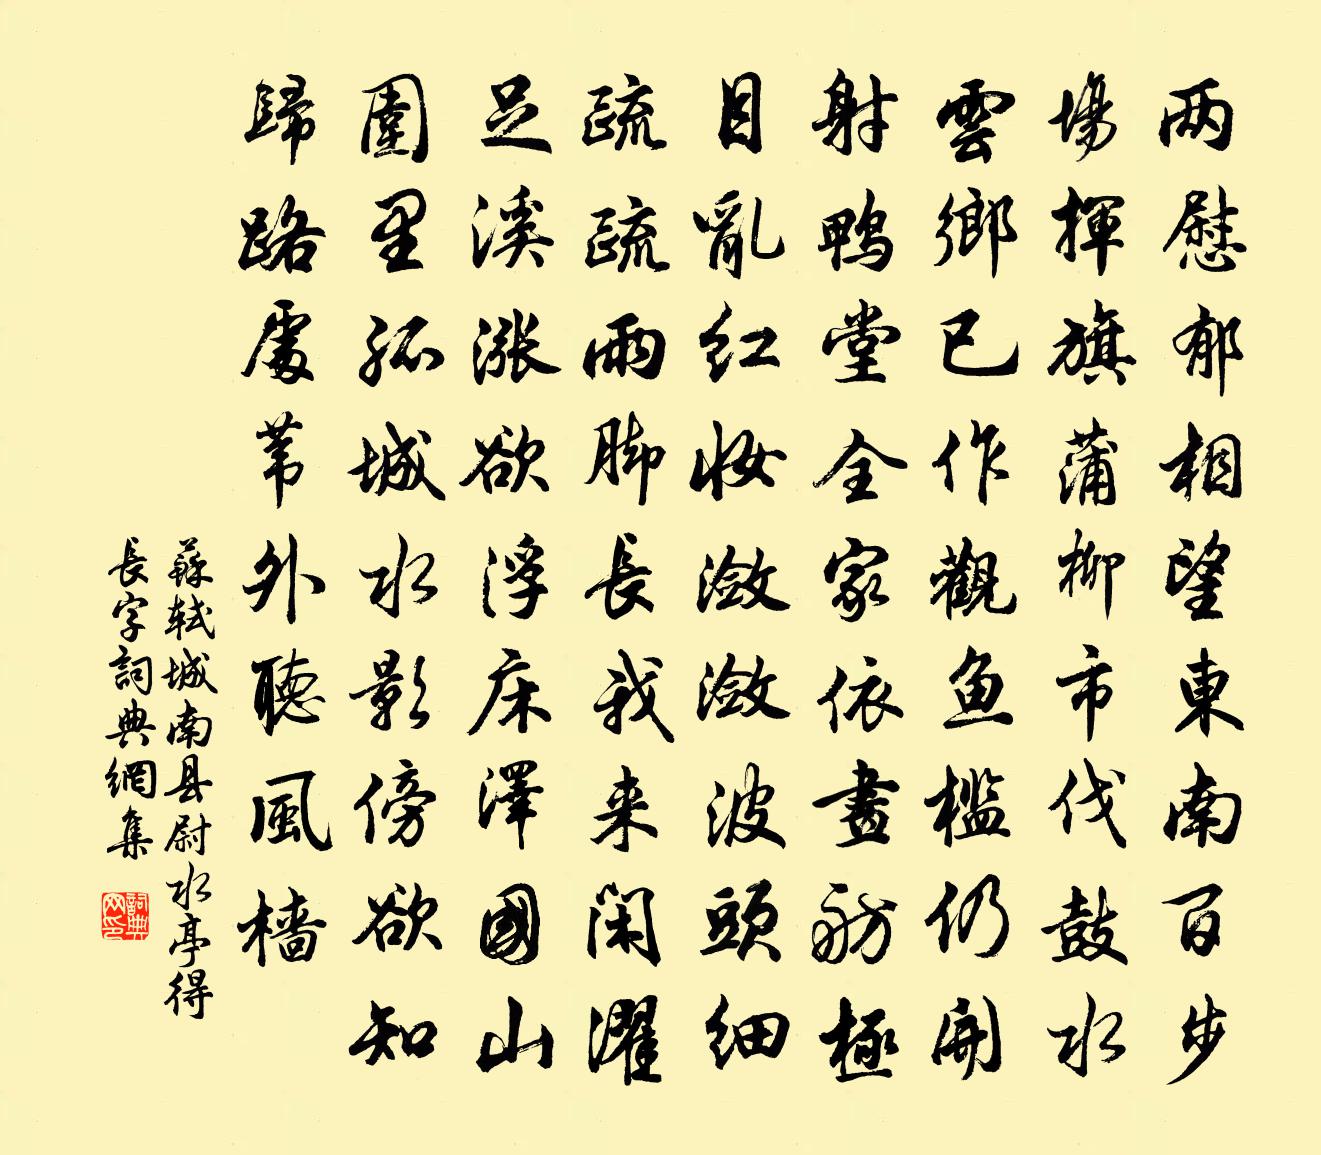 两慰郁相望東南百步
場揮旗蒲柳市伐鼓水
雲鄉已作觀鱼檻仍開
射鴨堂全家依畫舫極
目亂紅妝瀲瀲波頭細
疏疏雨脚長我来閑濯
足溪漲欲浮床澤國山
圍里孤城水影傍欲知
歸路處葦外聽風檣
蘇軾城南县尉水亭得
長字詞典網集
詞典
网印